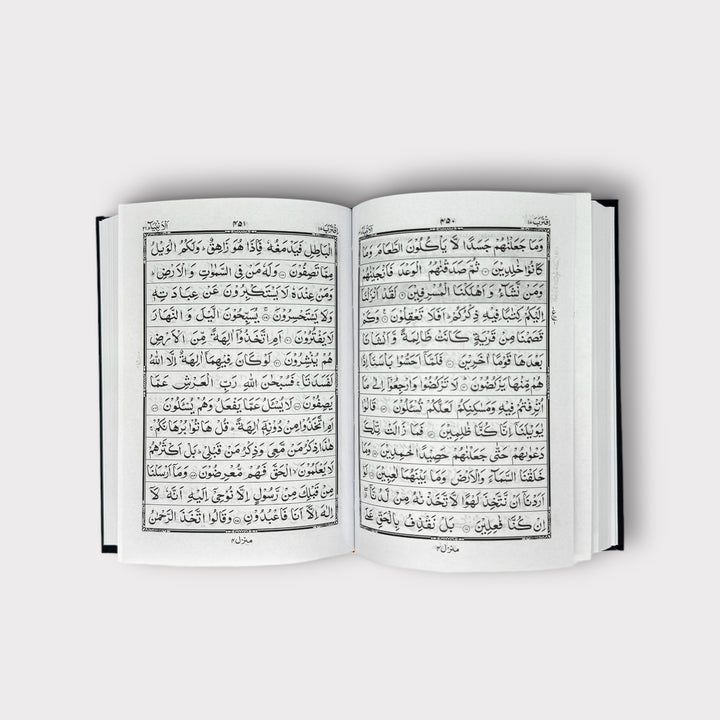 اقترب ١٧
٤٥٠
الانبيآء ٢١
وَمَا جَعَلْنٰهُمْ جَسَدًا لَّا يَاْكُلُوْنَ الطَّعَامَ وَمَا
كَانُوْا خٰلِدِيْنَ ۝ ثُمَّ صَدَقْنٰهُمُ الْوَعْدَ فَاَنْجَيْنٰهُمْ
وَمَنْ نَّشَآءُ وَاَهْلَكْنَا الْمُسْرِفِيْنَ ۝ لَقَدْ اَنْزَلْنَآ
اِلَيْكُمْ كِتٰبًا فِيْهِ ذِكْرُكُمْ ؕ اَفَلَا تَعْقِلُوْنَ ۝ وَكَمْ
قَصَمْنَا مِنْ قَرْيَةٍ كَانَتْ ظَالِمَةً وَّ اَنْشَاْنَا
بَعْدَهَا قَوْمًا اٰخَرِيْنَ ۝ فَلَمَّآ اَحَسُّوْا بَاْسَنَآ اِذَا
هُمْ مِّنْهَا يَرْكُضُوْنَ ۝ لَا تَرْكُضُوْا وَارْجِعُوْٓا اِلٰى مَآ
اُتْرِفْتُمْ فِيْهِ وَمَسٰكِنِكُمْ لَعَلَّكُمْ تُسْئَلُوْنَ ۝ قَالُوْا
يٰوَيْلَنَآ اِنَّا كُنَّا ظٰلِمِيْنَ ۝ فَمَا زَالَتْ تِّلْكَ
دَعْوٰىهُمْ حَتّٰى جَعَلْنٰهُمْ حَصِيْدًا خٰمِدِيْنَ ۝ وَمَا
خَلَقْنَا السَّمَآءَ وَالْاَرْضَ وَمَا بَيْنَهُمَا لٰعِبِيْنَ ۝ لَوْ
اَرَدْنَآ اَنْ نَّتَّخِذَ لَهْوًا لَّاتَّخَذْنٰهُ مِنْ لَّدُنَّآ ۖ
اِنْ كُنَّا فٰعِلِيْنَ ۝ بَلْ نَقْذِفُ بِالْحَقِّ عَلَى
منزل ٤
اقترب ١٧
٤٥١
الانبيآء ٢١
الْبَاطِلِ فَيَدْمَغُهٗ فَاِذَا هُوَ زَاهِقٌ ؕ وَلَكُمُ الْوَيْلُ
مِمَّا تَصِفُوْنَ ۝ وَلَهٗ مَنْ فِى السَّمٰوٰتِ وَ الْاَرْضِ ؕ
وَمَنْ عِنْدَهٗ لَا يَسْتَكْبِرُوْنَ عَنْ عِبَادَتِهٖ
وَلَا يَسْتَحْسِرُوْنَ ۝ يُسَبِّحُوْنَ الَّيْلَ وَ النَّهَارَ
لَا يَفْتُرُوْنَ ۝ اَمِ اتَّخَذُوْٓا اٰلِهَةً مِّنَ الْاَرْضِ
هُمْ يُنْشِرُوْنَ ۝ لَوْ كَانَ فِيْهِمَآ اٰلِهَةٌ اِلَّا اللّٰهُ
لَفَسَدَتَا ۚ فَسُبْحٰنَ اللّٰهِ رَبِّ الْعَرْشِ عَمَّا
يَصِفُوْنَ ۝ لَا يُسْئَلُ عَمَّا يَفْعَلُ وَهُمْ يُسْئَلُوْنَ ۝
اَمِ اتَّخَذُوْا مِنْ دُوْنِهٖٓ اٰلِهَةً ؕ قُلْ هَاتُوْا بُرْهَانَكُمْ ۚ
هٰذَا ذِكْرُ مَنْ مَّعِىَ وَذِكْرُ مَنْ قَبْلِىْ ؕ بَلْ اَكْثَرُهُمْ
لَا يَعْلَمُوْنَ ۙ الْحَقَّ فَهُمْ مُّعْرِضُوْنَ ۝ وَمَآ اَرْسَلْنَا
مِنْ قَبْلِكَ مِنْ رَّسُوْلٍ اِلَّا نُوْحِىْٓ اِلَيْهِ اَنَّهٗ لَآ
اِلٰهَ اِلَّآ اَنَا فَاعْبُدُوْنِ ۝ وَقَالُوا اتَّخَذَ الرَّحْمٰنُ
منزل ٤